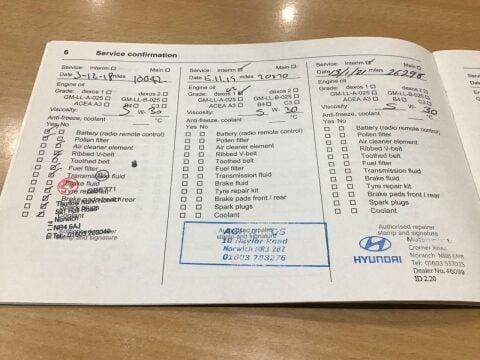 6 Service confirmation
Service: Interim Main
Date 3-12-18 miles 10042
Engine oil
Grade: dexos 1 dexos 2
GM-LL-A-025 GM-LL-B-025
ACEA A3 B4 C3
Viscosity: 5 W- 30
Anti-freeze, coolant °C
Yes No
Battery (radio remote control)
Pollen filter
Air cleaner element
Ribbed V-belt
Toothed belt
Fuel filter
Transmission fluid
Brake fluid
Tyre repair kit
Brake pads front / rear
Spark plugs
Coolant
Norwich
NR4 6AJ
Tel: 01603
stamp and signature
Service: Interim Main
Date 15.11.19 miles 20270
Engine oil
Grade: dexos 1 dexos 2
GM-LL-A-025 GM-LL-B-025
ACEA A3 B4 C3
Viscosity: 5 W- 30
Anti-freeze, coolant °C
Yes No
Battery (radio remote control)
Pollen filter
Air cleaner element
Ribbed V-belt
Toothed belt
Fuel filter
Transmission fluid
Brake fluid
Tyre repair kit
Brake pads front / rear
Spark plugs
Coolant
Authorised repairer
stamp and signature
10 Naylor Road
Norwich NR3 2BZ
01603 788276
Service: Interim Main
Date miles 26298
Engine oil
Grade: dexos 1 dexos 2
GM-LL-A-025 GM-LL-B-025
ACEA A3 B4 C3
Viscosity: 5 W- 30
Anti-freeze, coolant °C
Yes No
Battery (radio remote control)
Pollen filter
Air cleaner element
Ribbed V-belt
Toothed belt
Fuel filter
Transmission fluid
Brake fluid
Tyre repair kit
Brake pads front / rear
Spark plugs
Coolant
Authorised repairer
stamp and signature
HYUNDAI
Cromer Road
Norwich NR6 6NB
Tel: 01603
Dealer No.
ID 2.20